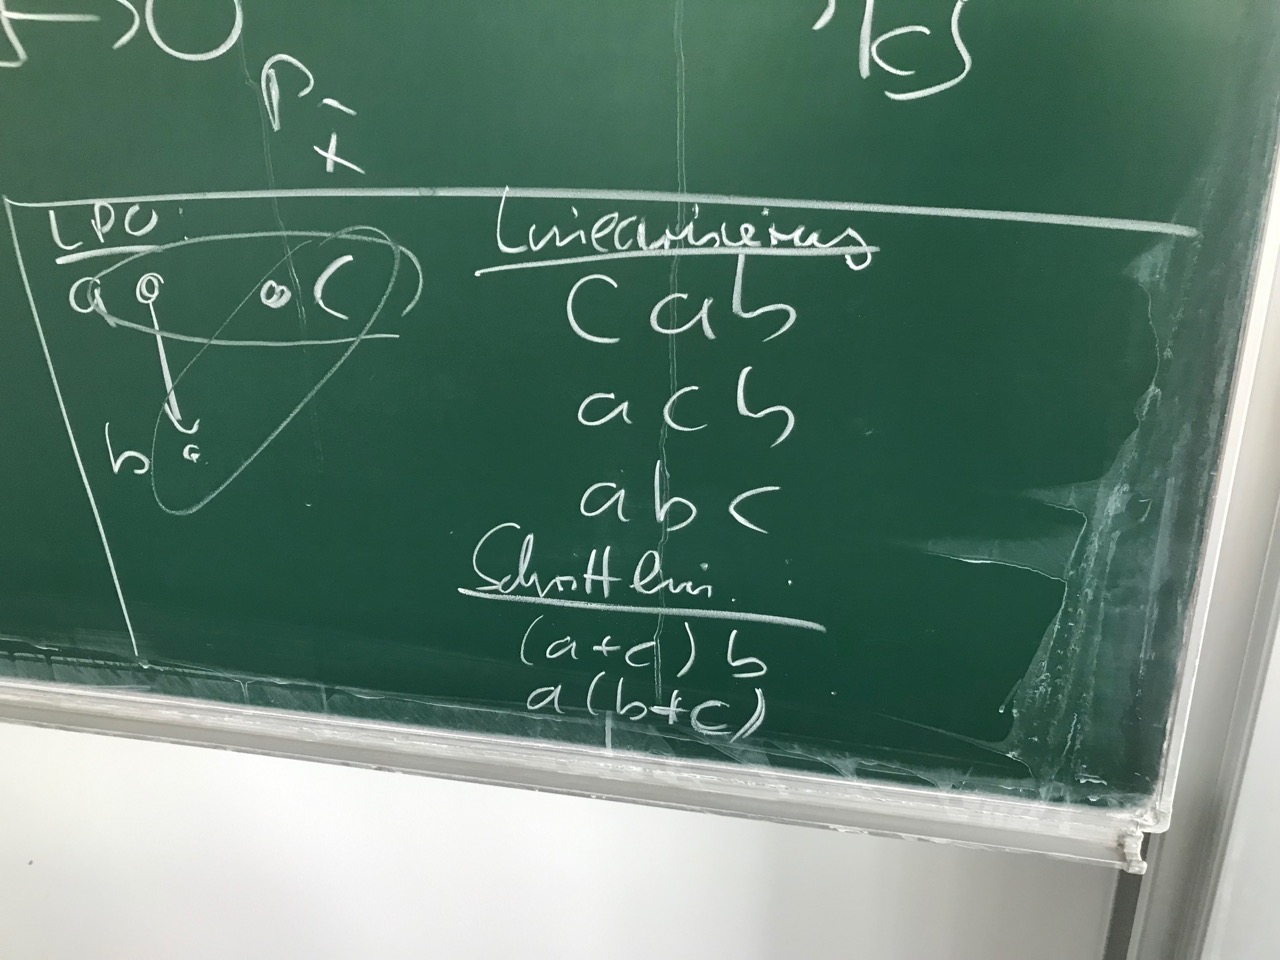 P
LPO:
a c
b
Linearisierung
c a b
a c b
a b c
Schrittlin.:
(a+c) b
a(b+c)